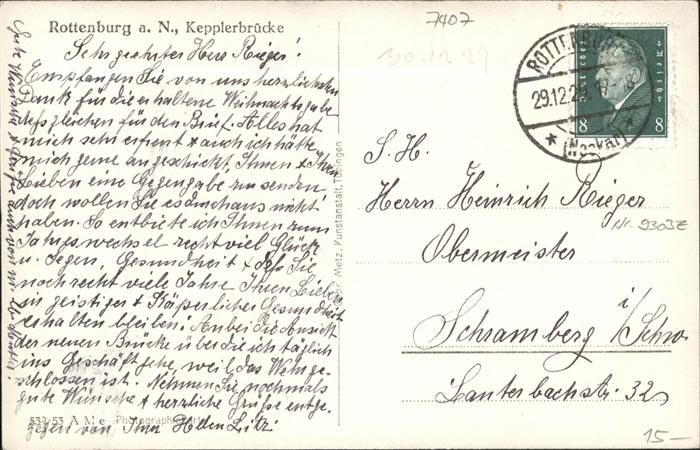 Rottenburg a. N., Kepplerbrücke
7407
30.12.29
Sehr geehrter Herr Rieger!
Empfangen Sie von uns herzlichsten
Dank für die erhaltene Weihnachtsgabe
desgleichen für den Brief. Alles hat
mich sehr erfreut & auch ich hätte
mich gerne angeschickt, Ihnen & Ihren
Lieben eine Gegengabe zu senden
doch wollen Sie es durchaus nicht
haben. So entbiete ich Ihnen zum
Jahreswechsel recht viel Glück
u. Segen, Gesundheit & daß Sie
noch recht viele Jahre Ihren Lieben
in geistiger & Körperlicher Gesundheit
erhalten bleiben. Anbei die Ansicht
der neuen Brücke über die ich täglich
ins Geschäft gehe, weil das Wehr ge-
schlossen ist. Nehmen Sie nochmals
gute Wünsche & herzliche Grüße entge-
gegen von Ihrer
533/53 A M e Photographie
Metz, Kunstanstalt, Tübingen
ROTTENBURG
29.12.29
(Neckar)
8 8
S. H.
Herrn Heinrich Rieger
Nr. 9303Z
Obermeister
Schramberg i/Schw.
Lauterbachstr. 32
15-